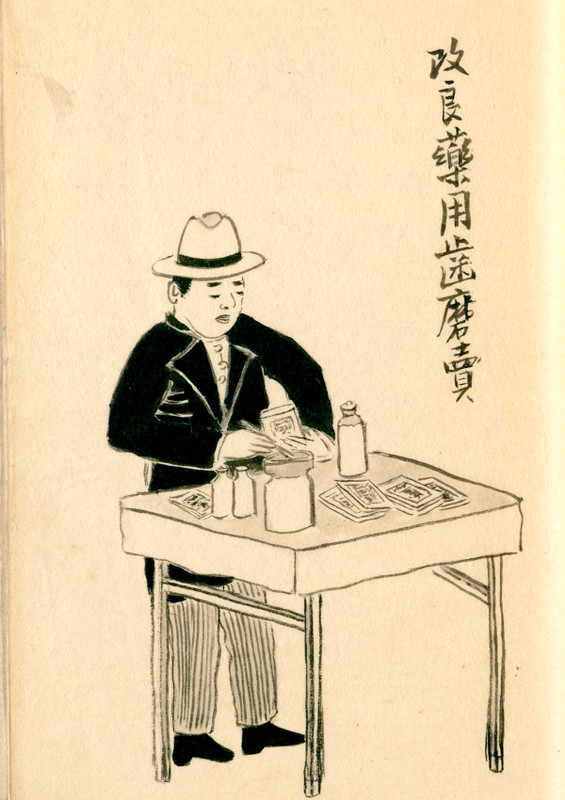 改良藥用歯磨賣